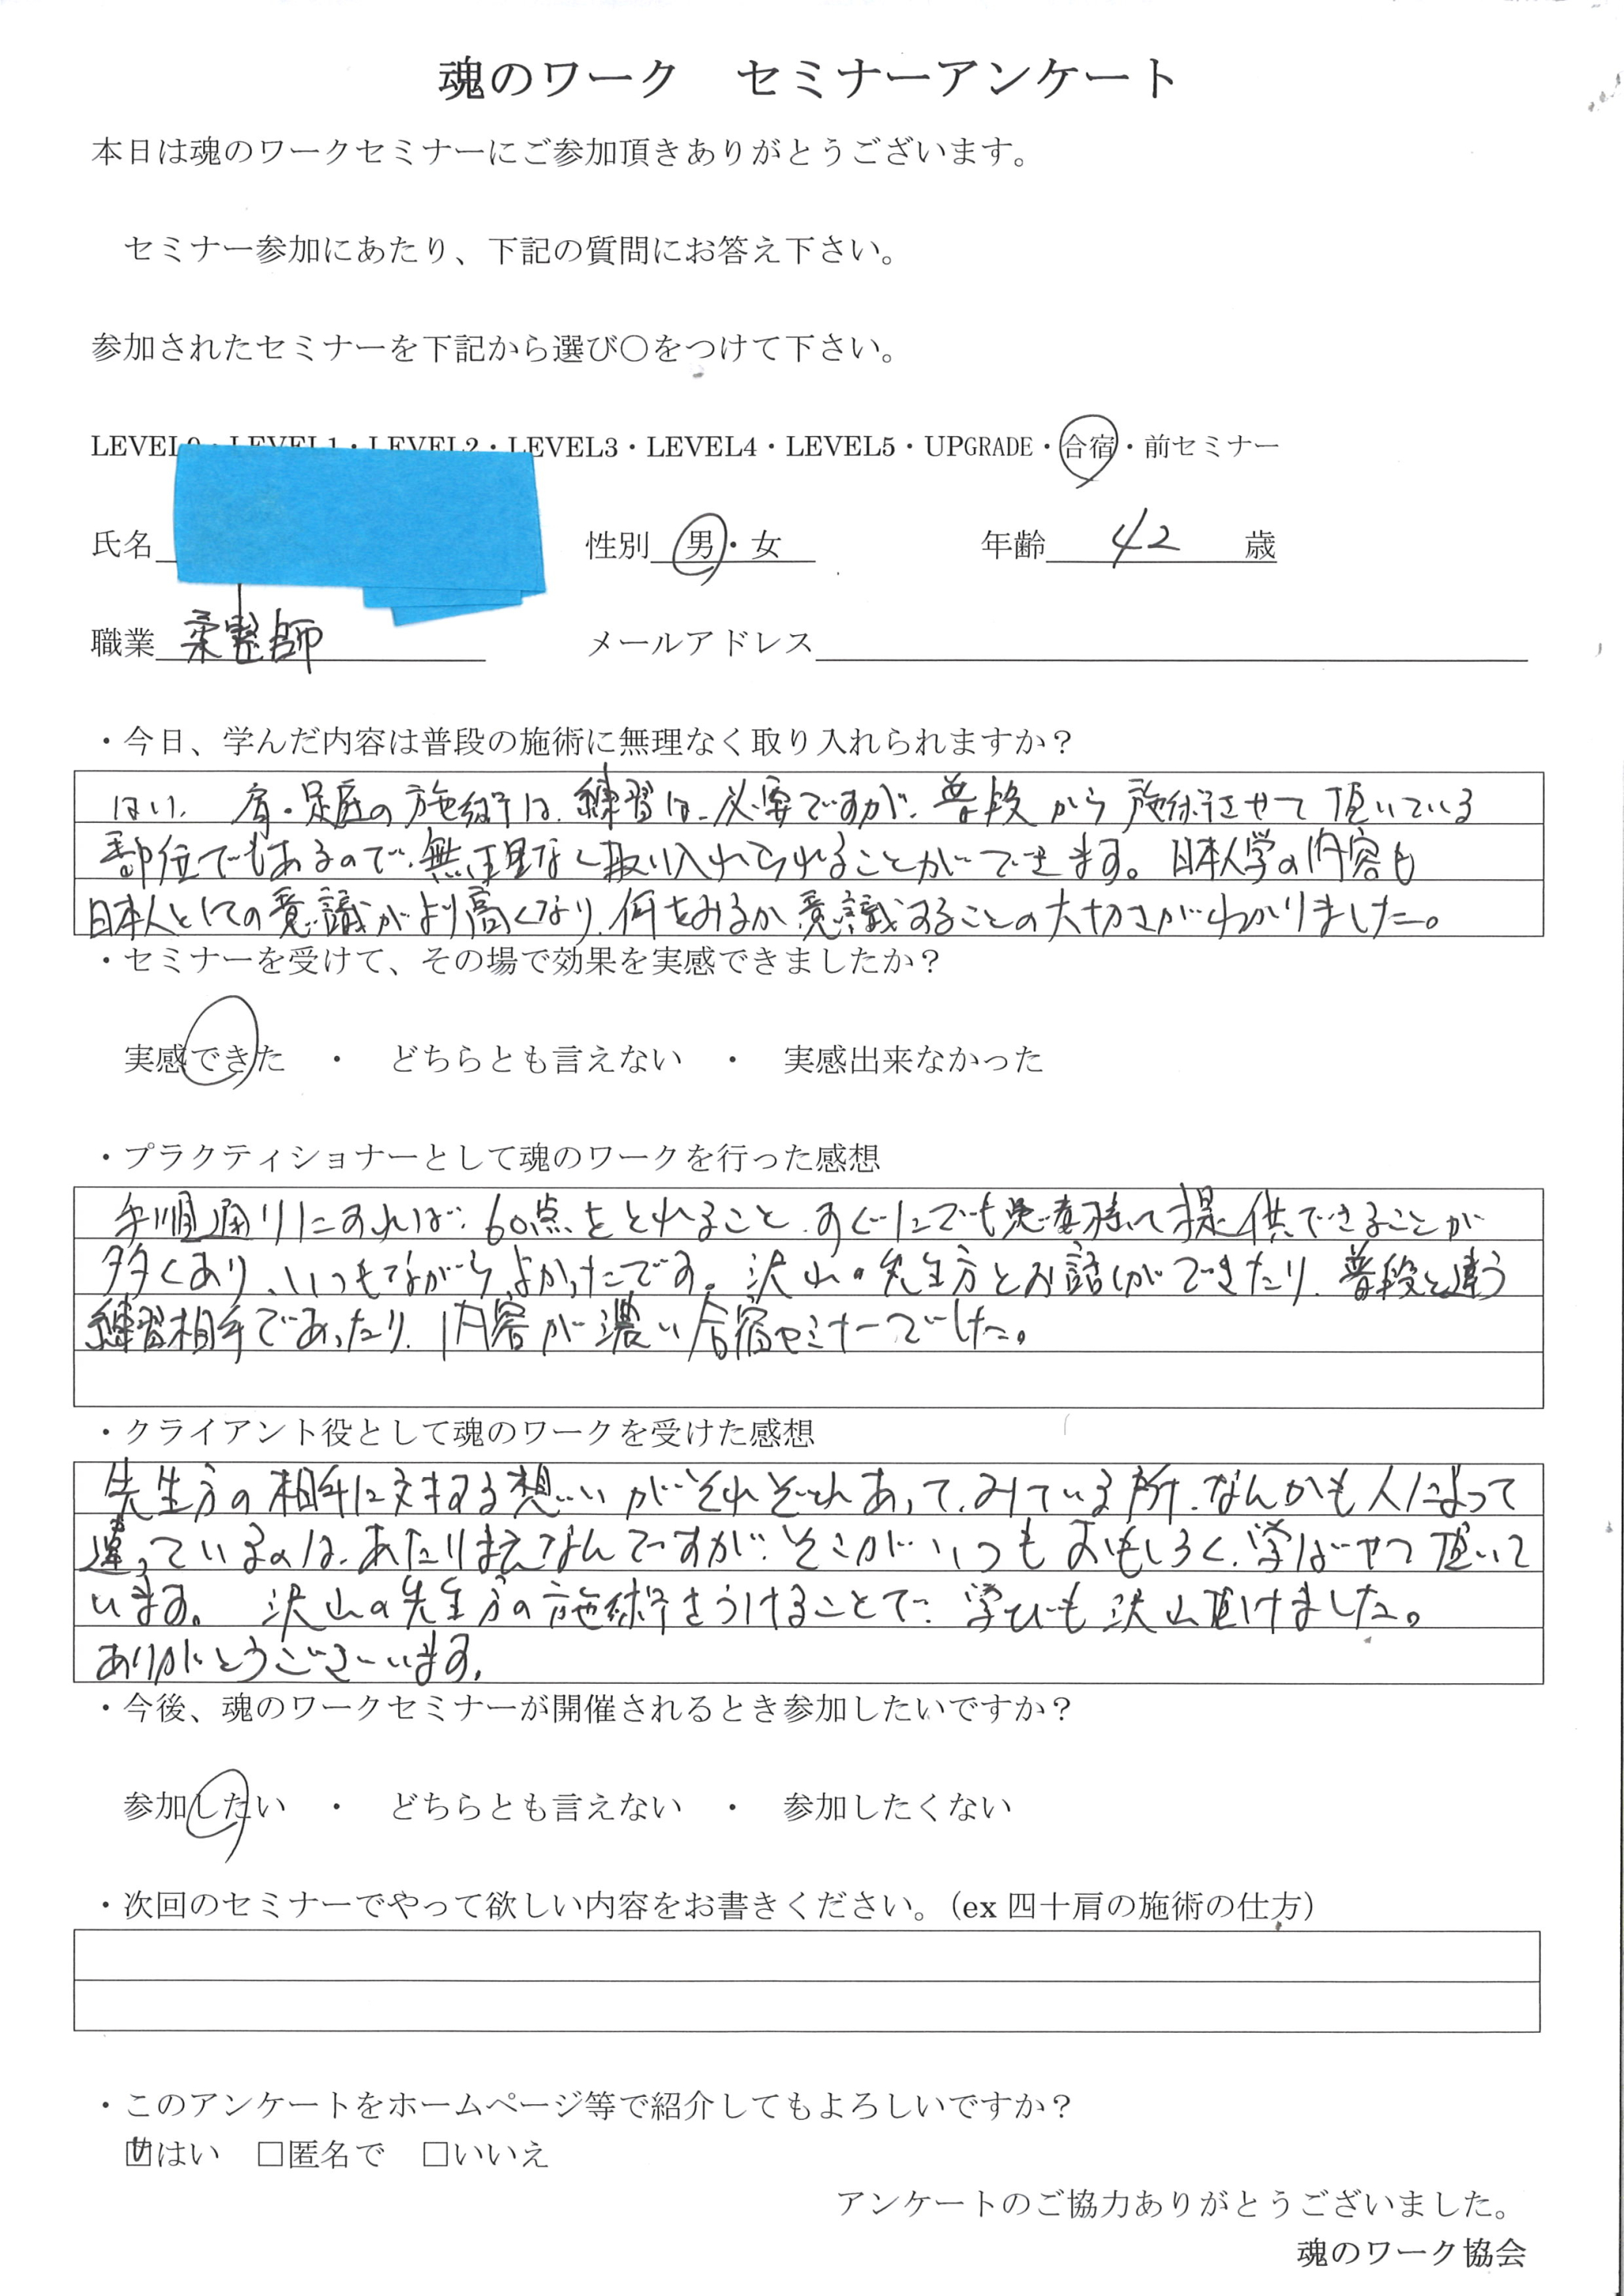 魂のワーク　セミナーアンケート
本日は魂のワークセミナーにご参加頂きありがとうございます。
セミナー参加にあたり、下記の質問にお答え下さい。
参加されたセミナーを下記から選び〇をつけて下さい。
LEVEL0・LEVEL1・LEVEL2・LEVEL3・LEVEL4・LEVEL5・UPGRADE・合宿・前セミナー
氏名　性別　男・女　年齢　42　歳
職業　柔整師　メールアドレス
・今日、学んだ内容は普段の施術に無理なく取り入れられますか？
はい、肩・足底の施術は、練習は、必要ですが、普段から施術させて頂いている
部位でもあるので、無理なく取り入れられることができます。日本人学の内容も
日本人としての意識がより高くなり、何をみるか意識することの大切さがわかりました。
・セミナーを受けて、その場で効果を実感できましたか？
実感できた　・　どちらとも言えない　・　実感出来なかった
・プラクティショナーとして魂のワークを行った感想
手順通りにすれば、60点をとれること、すぐにでも患者様に提供できることが
多くあり、いつもながらよかったです。沢山の先生方とお話しができたり、普段と違う
練習相手であったり、内容が濃い合宿セミナーでした。
・クライアント役として魂のワークを受けた感想
先生方の相手に対する想いがそれぞれあって、みている所、なんかも人によって
違っているのは、あたりまえなんですが、そこがいつもおもしろく、学ばせて頂いて
います。　沢山の先生方の施術をうけることで、学びも沢山頂けました。
ありがとうございます。
・今後、魂のワークセミナーが開催されるとき参加したいですか？
参加したい　・　どちらとも言えない　・　参加したくない
・次回のセミナーでやって欲しい内容をお書きください。（ex 四十肩の施術の仕方）
・このアンケートをホームページ等で紹介してもよろしいですか？
☑はい　□匿名で　□いいえ
アンケートのご協力ありがとうございました。
魂のワーク協会